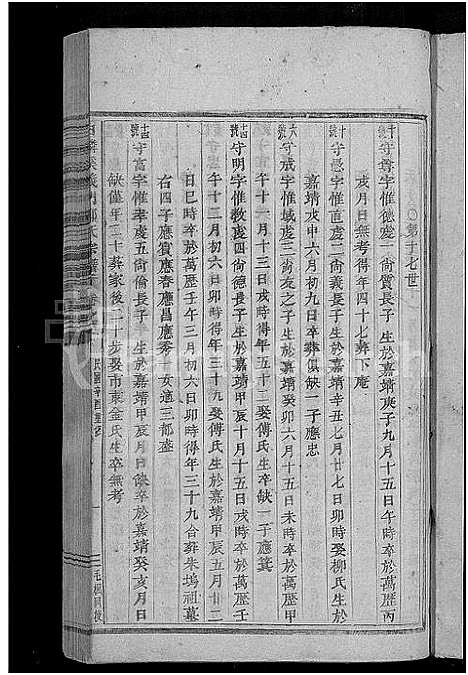 ○第十七世
守尊字惟德虔一尙賢長子生於嘉靖庚子九月十五日卒於萬歷丙
戌月日無考得年四十七葬下庵
守愚字惟直虔二尙義長子生於嘉靖辛丑七月廿七日卯時娶柳氏生於
嘉靖戊申六月初九日卒葬俱缺一子應忠
守戒字惟城虔三尙友之子生於嘉靖癸卯六月十五日未時卒於萬歷甲
午十一月十三日戌時得年五十二娶傅氏生卒缺一子應箕
守明字惟教虔四尙德長子生於嘉靖甲辰十月十五日戌時卒於萬歷壬
午十二月初六日卯時得年三十九娶傅氏生於嘉靖甲辰五月廿二
日巳時卒於三月初六日卯時得年三十九合葬朱塢祖墓
右四子應賓應春應昌應秀 女適三都盛
守富字惟孝虔五尙倫長子生於嘉靖甲辰月日缺卒於嘉靖癸亥月日
缺僅年二十葬家後二十步娶市東金氏生卒無考